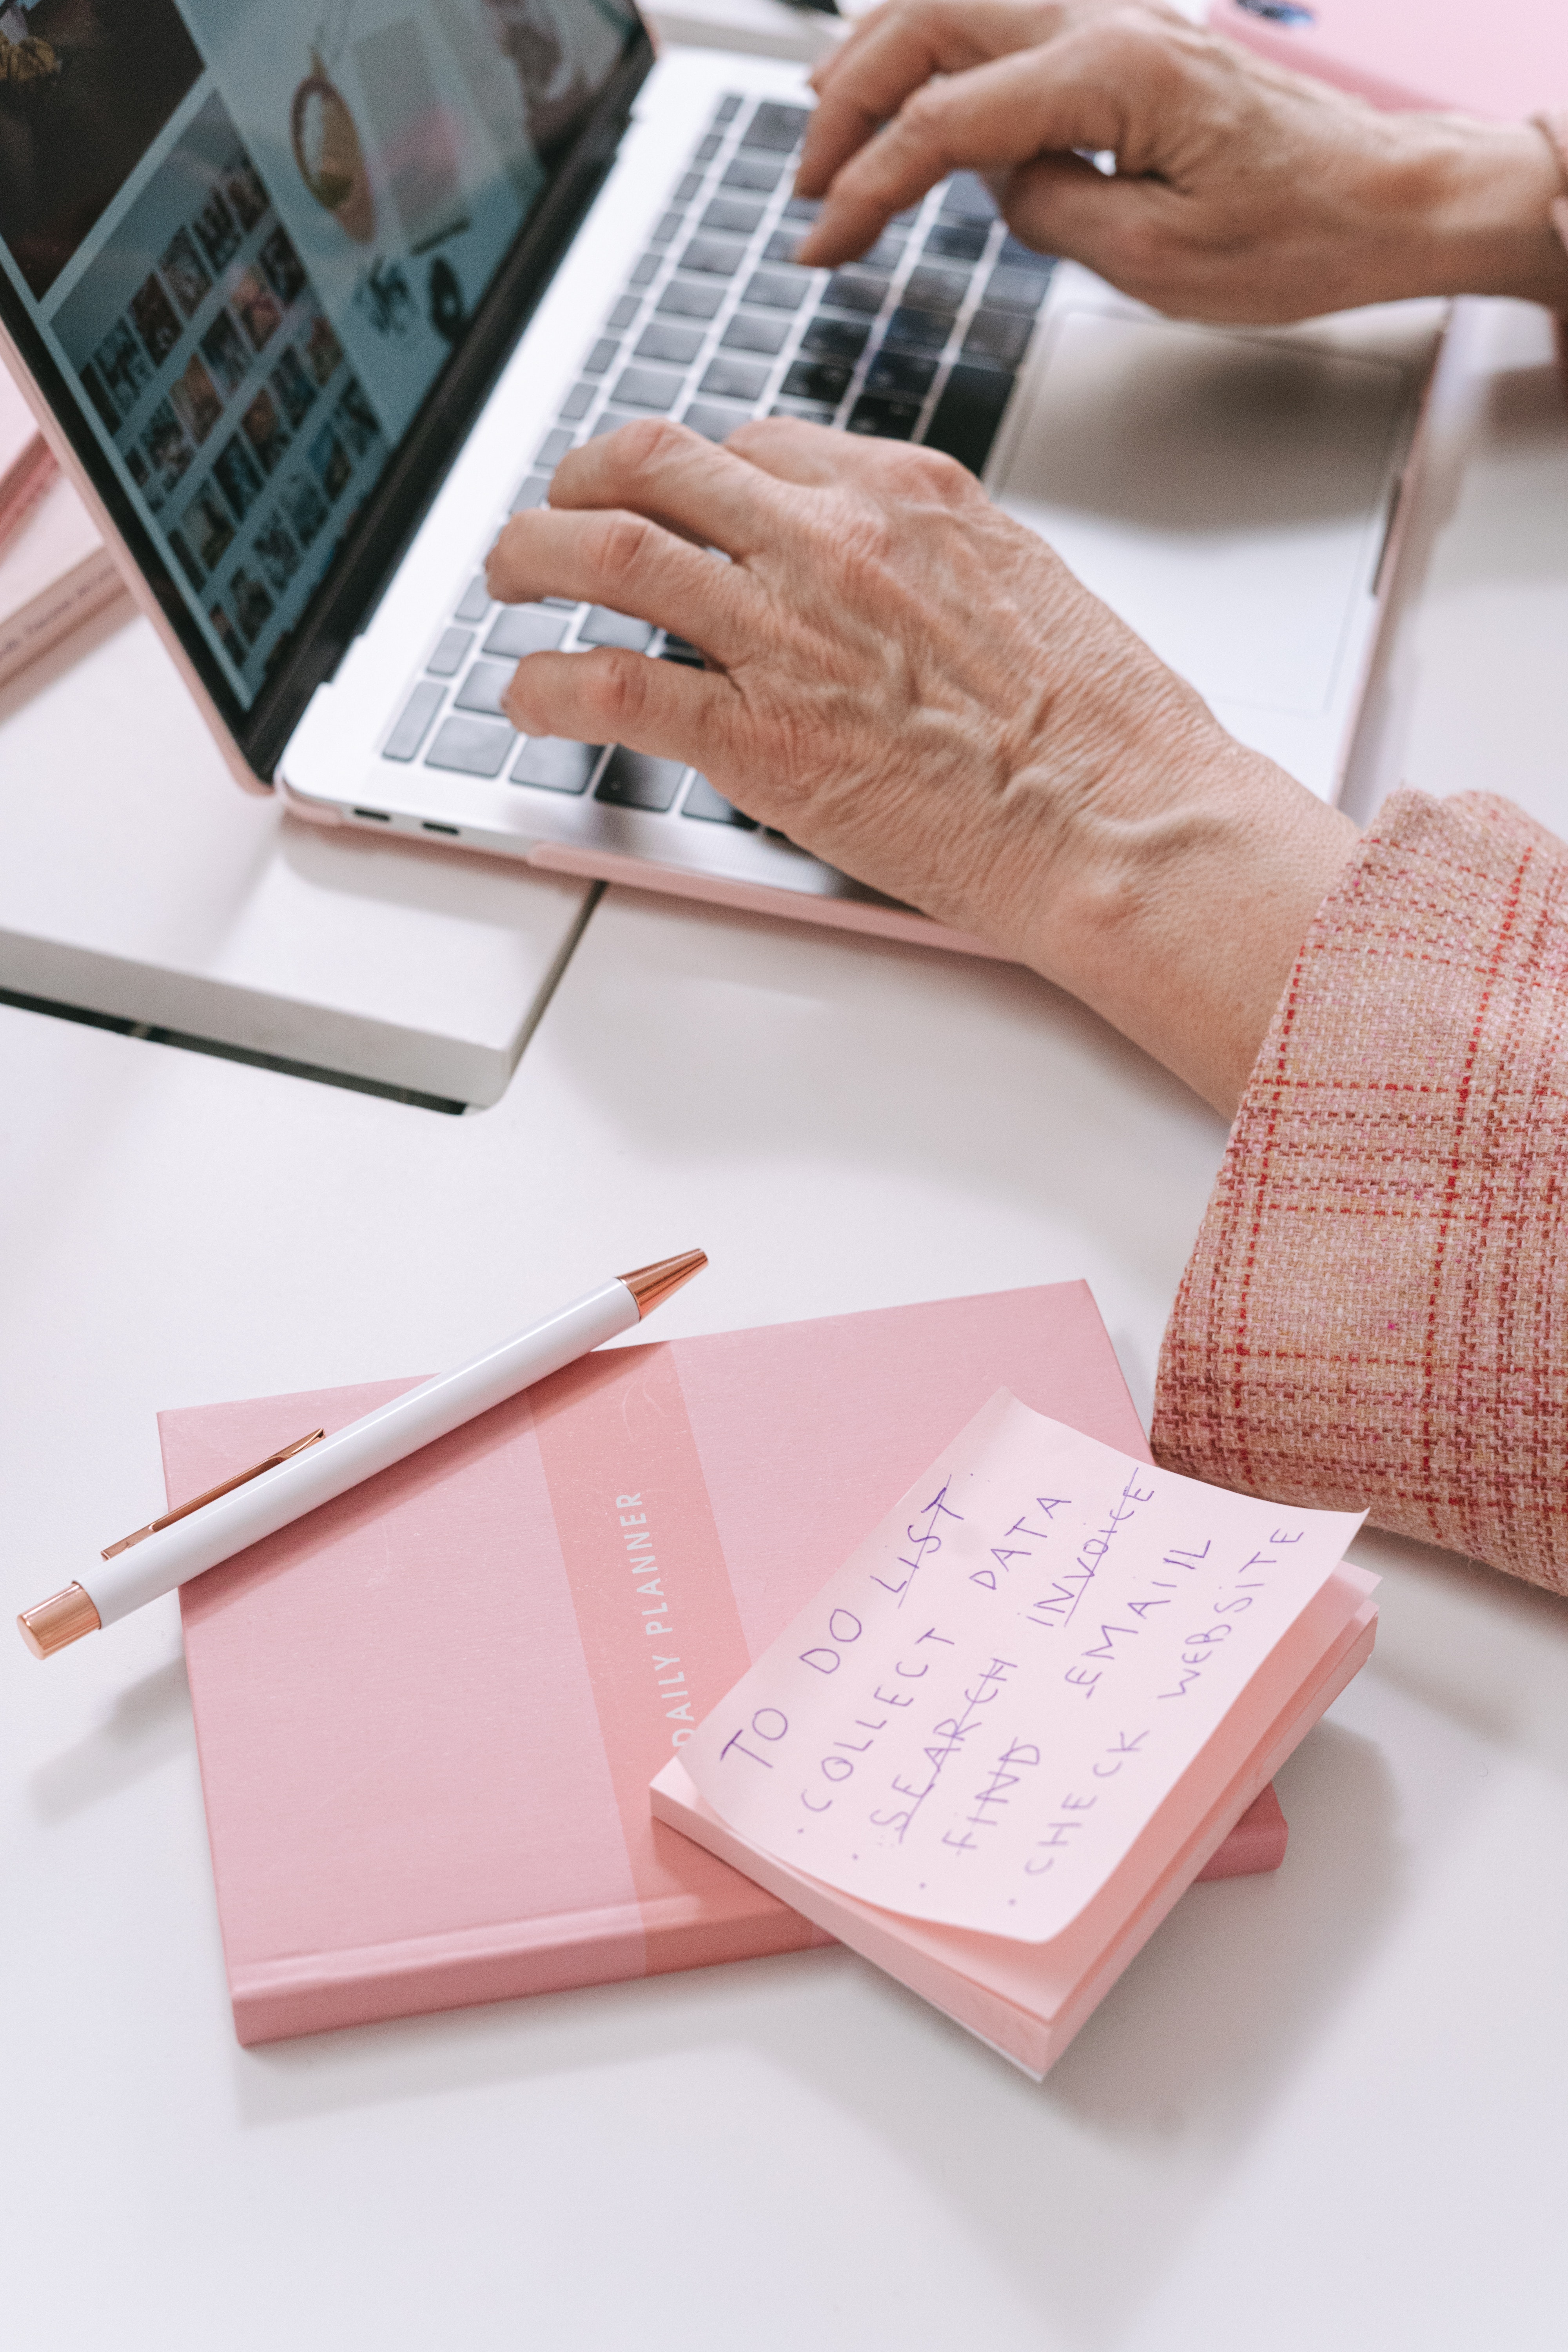 DAILY PLANNER
TO DO LIST
· COLLECT DATA
· SEARCH INVOICE
· FIND EMAIL
· CHECK WEBSITE